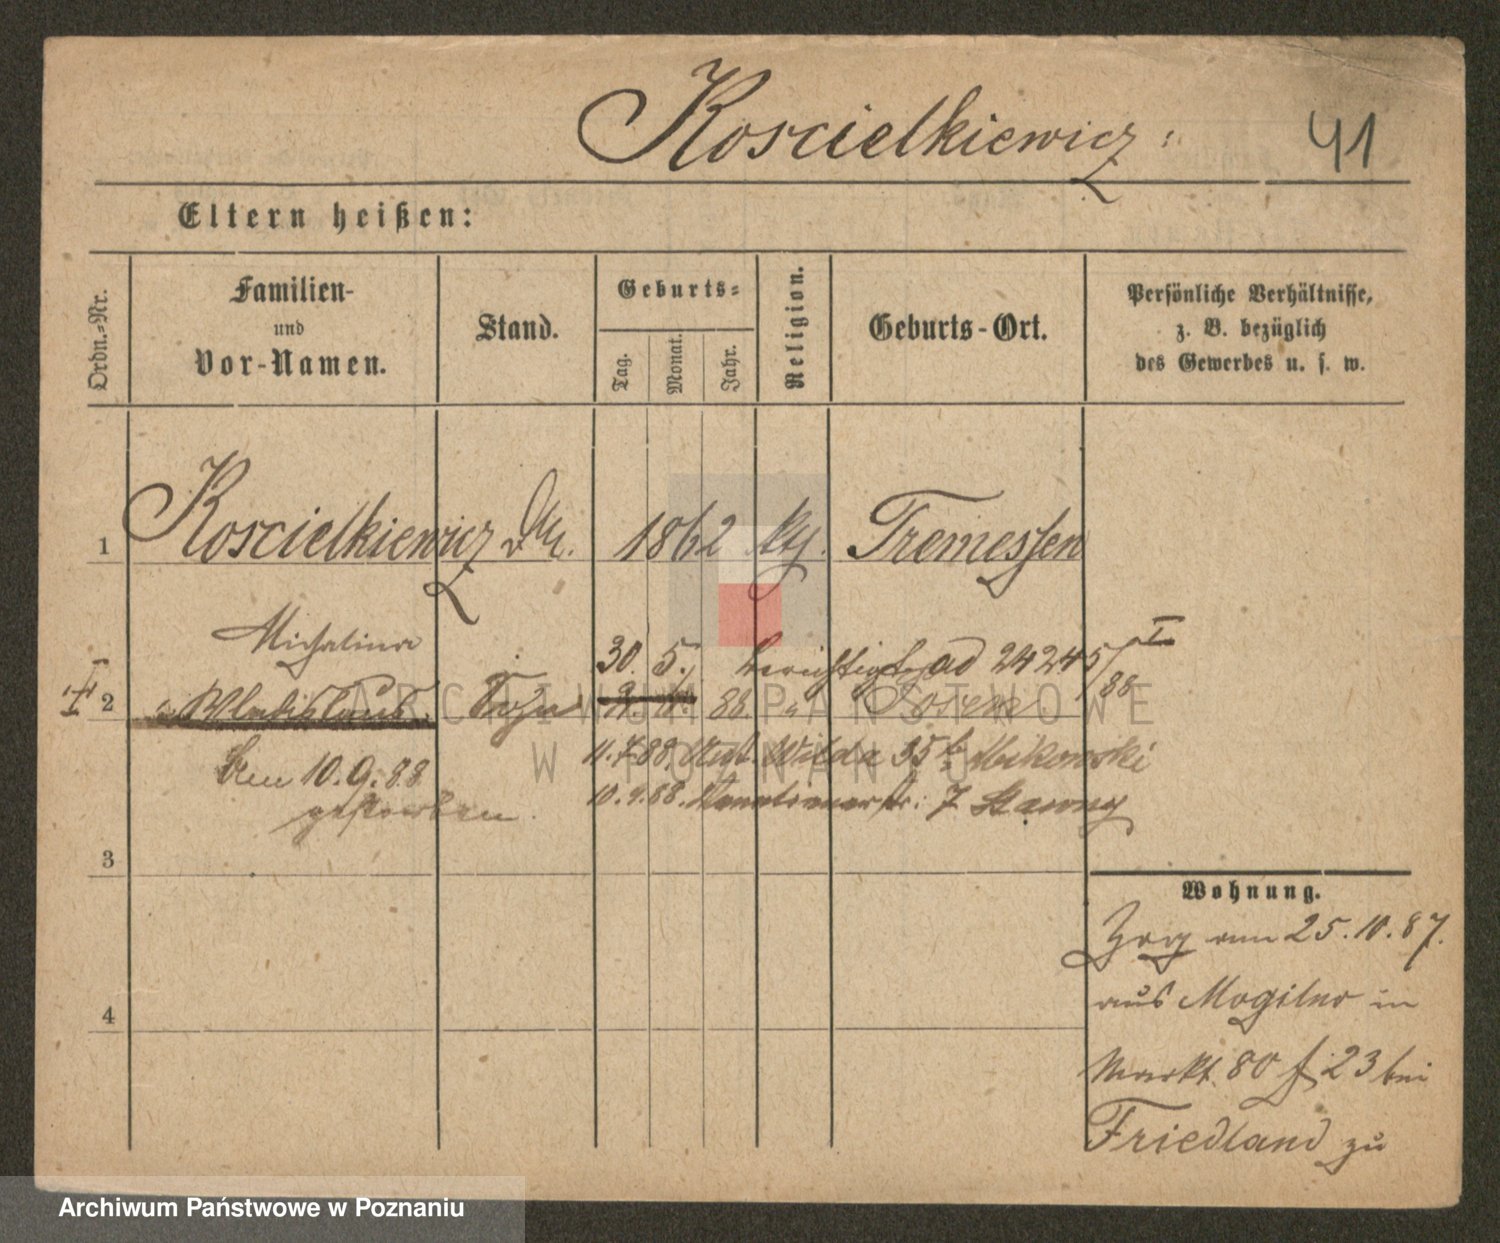 Koscielkiewicz
41
Eltern heißen:
Ordn.=Nr.
Familien-
und
Vor-Namen.
Stand.
Geburts=
Tag.
Monat.
Jahr.
Religion.
Geburts-Ort.
Persönliche Verhältnisse,
z. B. bezüglich
des Gewerbes u. s. w.
1 Koscielkiewicz 1862 Tremessen
Michalina
30. 5. berichtigt ad 24245/88 I
I 2 Wladislaus 86 Posen
11.7.88. Wilda 35 b. Mikowski
am 10.9.88
gestorben
10.9.88. 7
3
Wohnung.
Zog am 25.10.87.
aus Mogilno in
4
Markt 80 f 23 bei
Friedland zu
ARCHIWUM PAŃSTWOWE
W POZNANIU
Archiwum Państwowe w Poznaniu